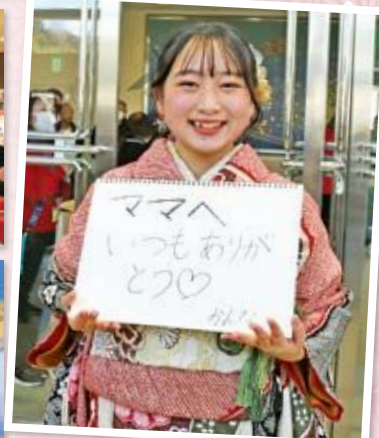 ママへ
いつもありが
とう♡
かんな